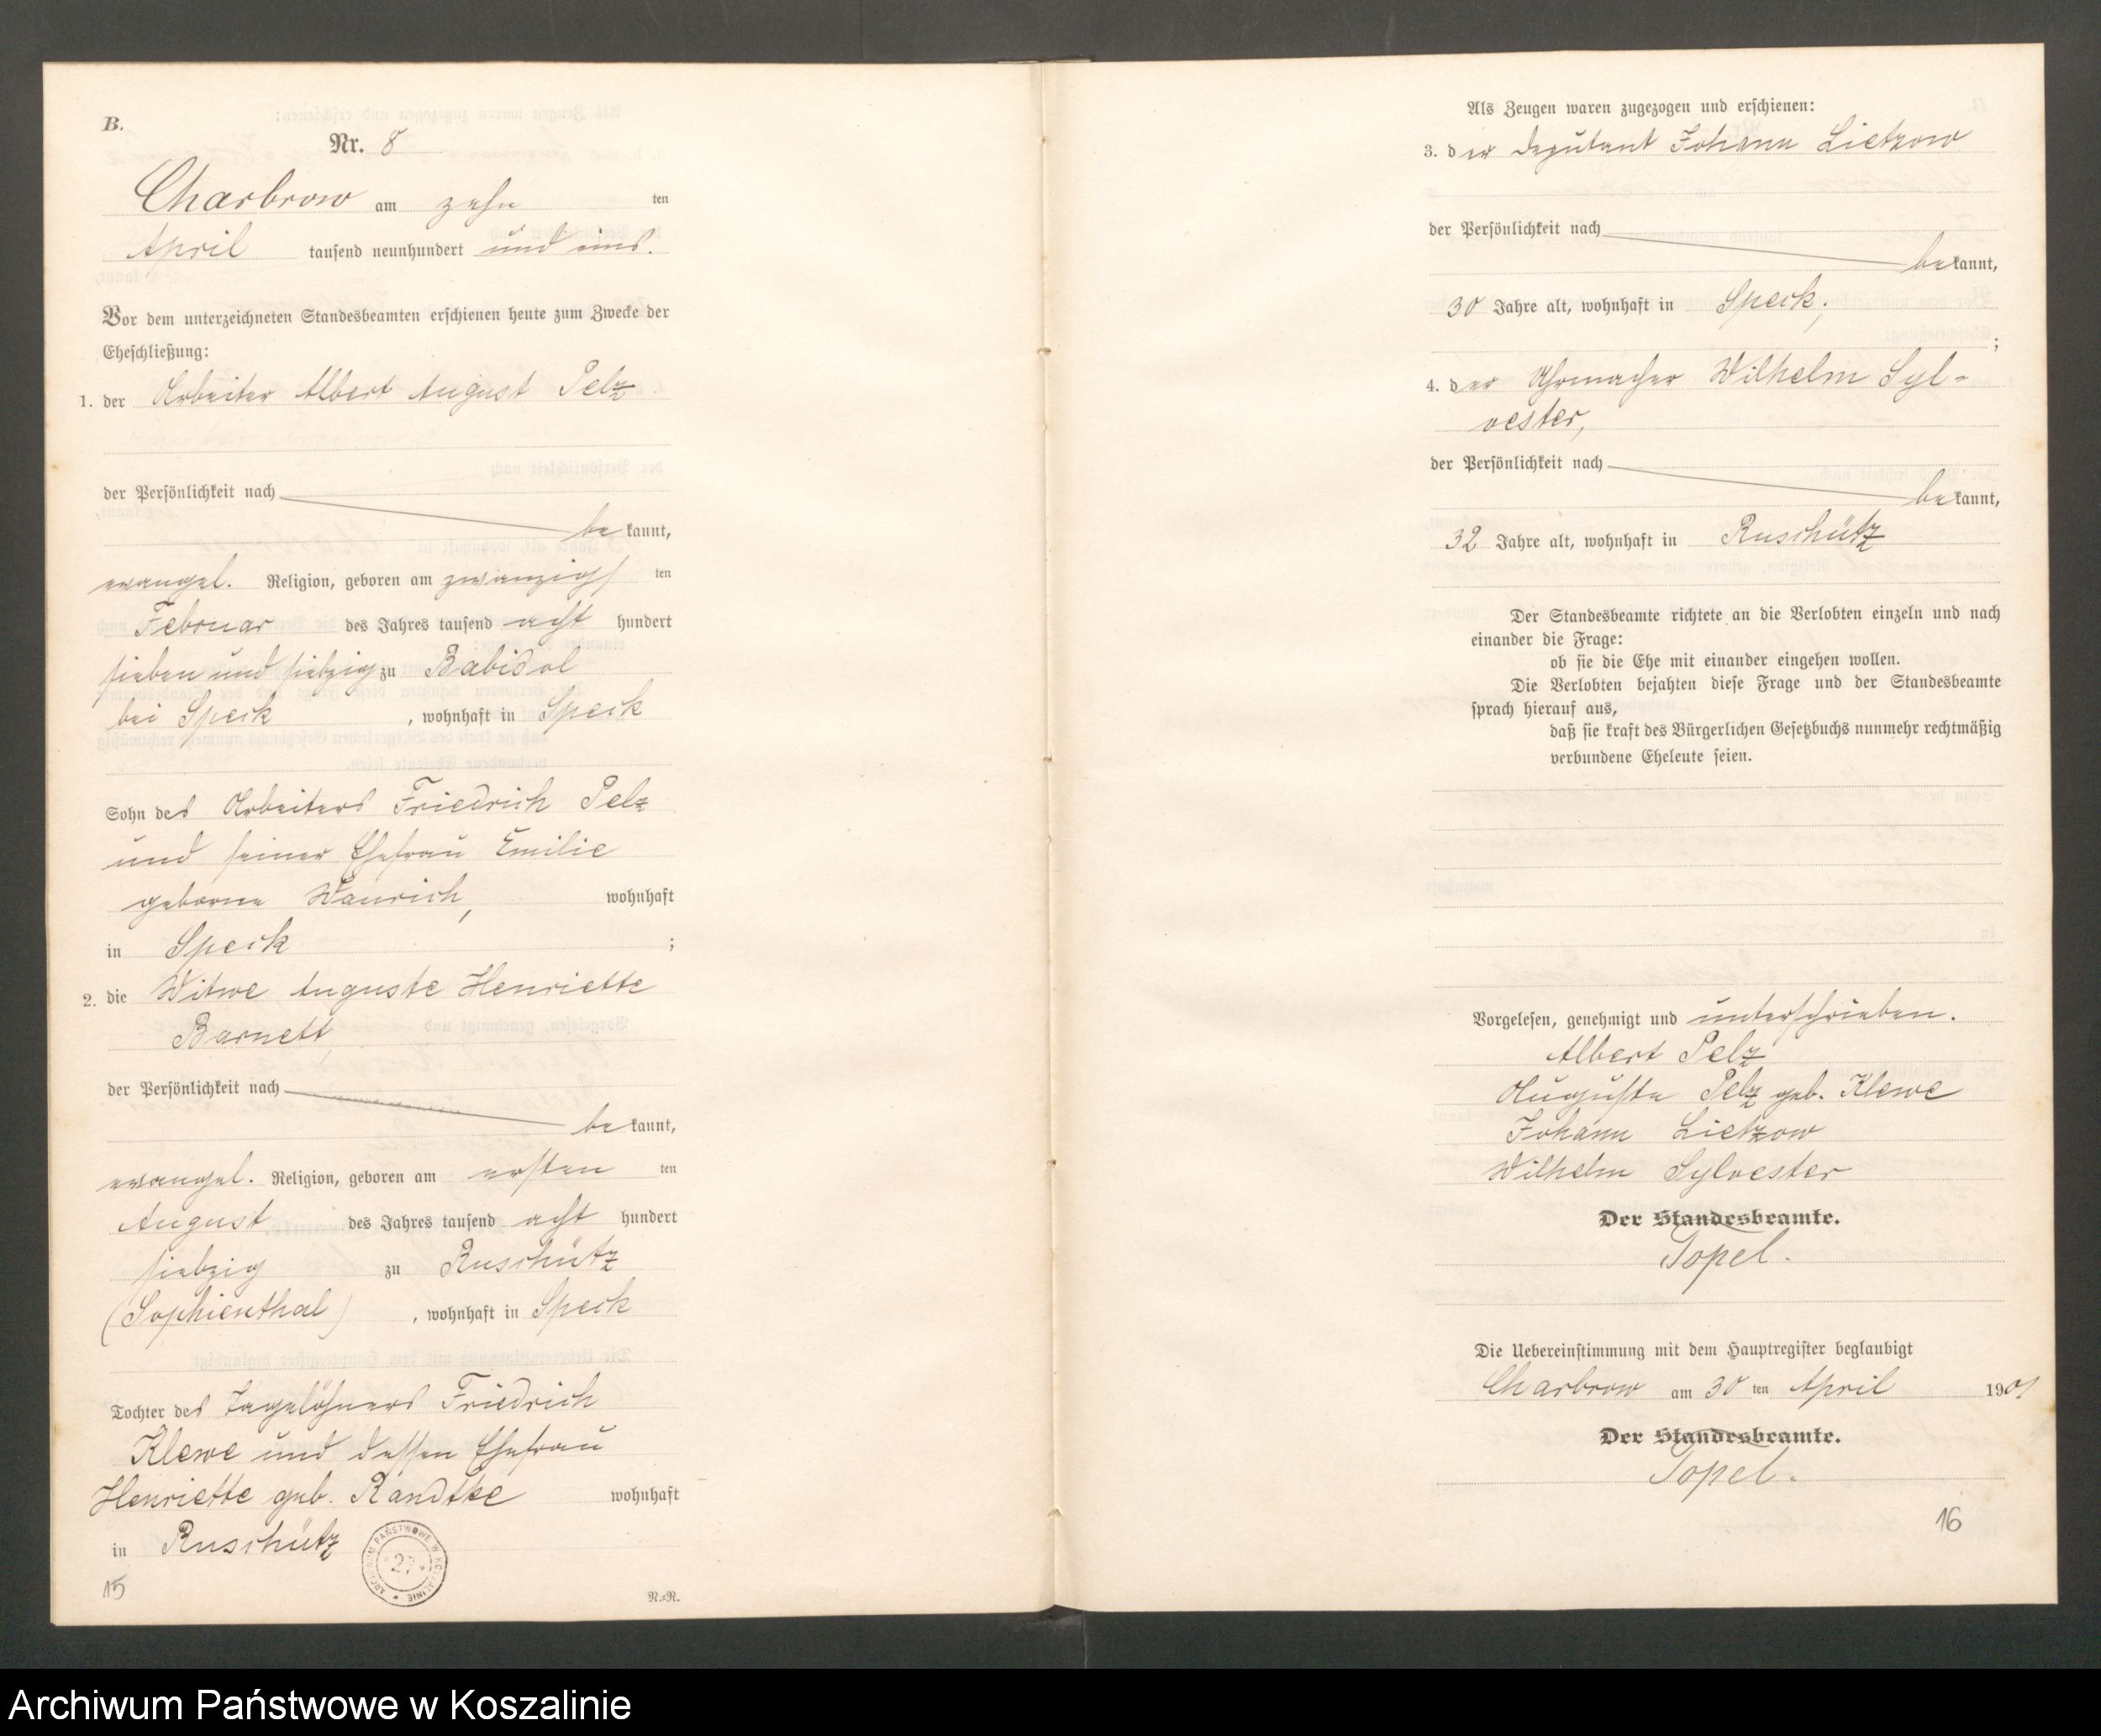 B.
Nr. 8
Charbrow am zehn ten
April tausend neunhundert und eins.
Vor dem unterzeichneten Standesbeamten erschienen heute zum Zwecke der
Eheschließung:
1. der Arbeiter Albert August Pelz
der Persönlichkeit nach
be kannt,
evangel. Religion, geboren am zwanzigs ten
Februar des Jahres tausend acht hundert
sieben und siebzig zu Babidol
bei Speck , wohnhaft in Speck
Sohn des Arbeiters Friedrich Pelz
und seiner Ehefrau Emilie
geborne Wanrich, wohnhaft
in Speck ;
2. die Witwe Auguste Henriette
Barnett
der Persönlichkeit nach
be kannt,
evangel. Religion, geboren am ersten ten
August des Jahres tausend acht hundert
siebzig zu Ruschütz
(Sophienthal) , wohnhaft in Speck
Tochter des Tagelöhners Friedrich
Klewe und dessen Ehefrau
Henriette geb. Randtke wohnhaft
in Ruschütz
ARCHIWUM PAŃSTWOWE W KOSZALINIE
27
15
N.=R.
Als Zeugen waren zugezogen und erschienen:
3. der Deputant Johann Lietzow
der Persönlichkeit nach
be kannt,
30 Jahre alt, wohnhaft in Speck;
;
4. der Uhrmacher Wilhelm Syl-
vester,
der Persönlichkeit nach
be kannt,
32 Jahre alt, wohnhaft in Ruschütz
Der Standesbeamte richtete an die Verlobten einzeln und nach
einander die Frage:
ob sie die Ehe mit einander eingehen wollen.
Die Verlobten bejahten diese Frage und der Standesbeamte
sprach hierauf aus,
daß sie kraft des Bürgerlichen Gesetzbuchs nunmehr rechtmäßig
verbundene Eheleute seien.
Vorgelesen, genehmigt und unterschrieben.
Albert Pelz
Auguste Pelz geb. Klewe
Johann Lietzow
Wilhelm Sylvester
Der Standesbeamte.
Topel.
Die Uebereinstimmung mit dem Hauptregister beglaubigt
Charbrow am 30 ten April 1901
Der Standesbeamte.
Topel.
16
Archiwum Państwowe w Koszalinie